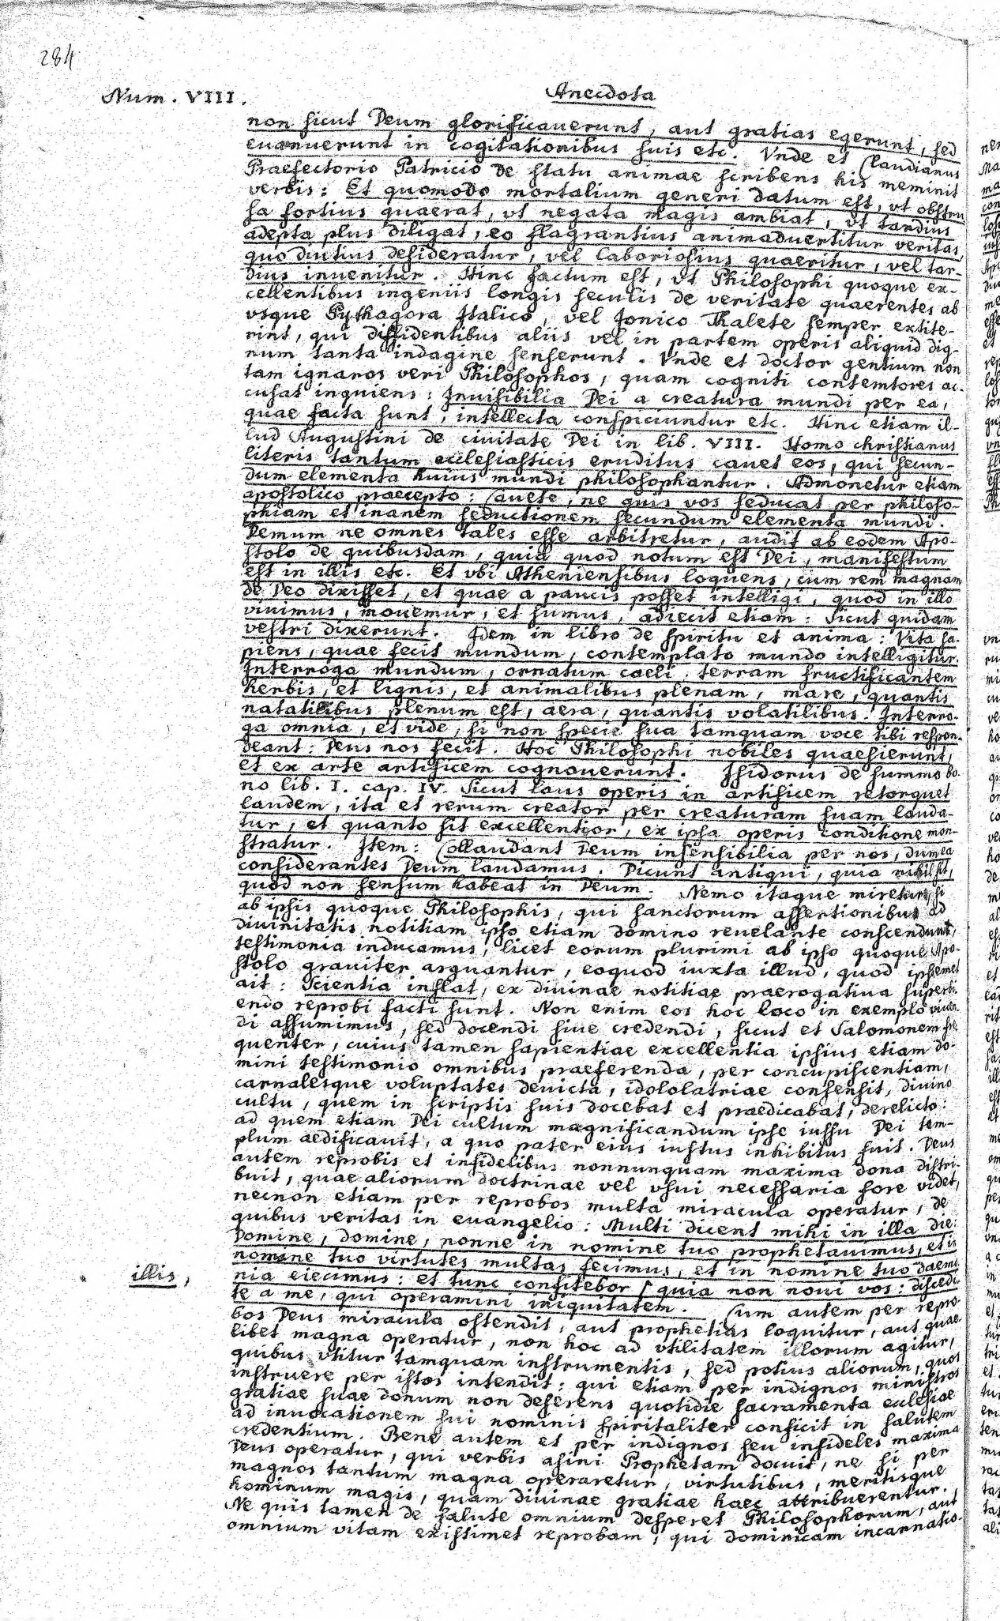 284
Num. VIII.
Anecdota
non sicut Deum glorificauerunt, aut gratias egerunt, sed
euanuerunt in cogitationibus suis etc. Vnde et Claudianus
Praefectorio Patricio de statu animae scribens his meminit
verbis: Et quomodo mortalium generi datum est, vt obstru
sa fortius quaerat, vt negata magis ambiat, vt tardius
adepta plus diligat, eo flagrantius animaduertitur veritas,
quo diutius desideratur, vel laboriosius quaeritur, vel tar-
dius inuenitur. Hinc factum est, vt Philosophi quoque ex-
cellentibus ingeniis longis seculis de veritate quaerentes ab
vsque Pythagora Italico, vel Jonico Thalete semper extite-
rint, qui diffidentibus aliis vel in partem operis aliquid dig-
num tanta indagine senserunt. Vnde et doctor gentium non
tam ignaros veri Philosophos, quam cogniti contemtores ac-
cusat inquiens: Inuisibilia Dei a creatura mundi per ea,
quae facta sunt, intellecta conspiciuntur etc. Hinc etiam il-
lud Augustini de ciuitate Dei in lib. VIII. Homo christianus
literis tantum ecclesiasticis eruditus cauet eos, qui secun-
dum elementa huius mundi philosophantur. Admonetur etiam
apostolico praecepto: Cauete, ne quis vos seducat per philoso-
phiam et inanem seductionem secundum elementa mundi.
Demum ne omnes tales esse arbitretur, audit ab eodem Apo-
stolo de quibusdam, quia quod notum est Dei, manifestum
est in illis etc. Et vbi Atheniensibus loquens, cum rem magnam
de Deo dixisset, et quae a paucis posset intelligi, quod in illo
viuimus, mouemur, et sumus, adiecit etiam: Sicut quidam
vestri dixerunt. Idem in libro de spiritu et anima: Vita sa-
piens, quae fecit mundum, contemplato mundo intelligitur.
Interroga mundum, ornatum caeli, terram fructificantem
herbis, et lignis, et animalibus plenam, mare, quantis
natatilibus plenum est, aera, quantis volatilibus. Interro-
ga omnia, et vide, si non specie sua tamquam voce tibi respon-
deant: Deus nos fecit. Hoc Philosophi nobiles quaesierunt,
et ex arte artificem cognouerunt. Isidorus de summo bo-
no lib. I. cap. IV. Sicut laus operis in artificem retorquet
laudem, ita et rerum creator per creaturam suam lauda-
tur, et quanto sit excellentior, ex ipsa operis conditione mon-
stratur. Item: Collaudant Deum insensibilia per nos, dum ea
considerantes Deum laudamus. Dicunt antiqui, quia nihil sit,
quod non sensum habeat in Deum. Nemo itaque miretur, si
ab ipsis quoque Philosophis, qui sanctorum assertionibus ad
diuinitatis notitiam ipso etiam domino reuelante conscendunt,
testimonia inducamus, licet eorum plurimi ab ipso quoque Apo-
stolo grauiter arguantur, eoquod iuxta illud, quod ipsemet
ait: Scientia inflat, ex diuinae notitiae praerogatiua superbi-
endo reprobi facti sunt. Non enim eos hoc loco in exemplo viuen-
di assumimus, sed docendi siue credendi, sicut et Salomonem fre-
quenter, cuius tamen sapientiae excellentia ipsius etiam do-
mini testimonio omnibus praeferenda, per concupiscentiam,
carnalesque voluptates deuicta, idololatriae consensit, diuino
cultu, quem in scriptis suis docebat et praedicabat, derelicto:
ad quem etiam Dei cultum magnificandum ipse iussu Dei tem-
plum aedificauit, a quo pater eius iustus inhibitus fuit. Deus
autem reprobis et infidelibus nonnunquam maxima dona distri-
buit, quae aliorum doctrinae vel vsui necessaria fore videt,
necnon etiam per reprobos multa miracula operatur, de
quibus veritas in euangelio: Multi dicent mihi in illa die:
Domine, domine, nonne in nomine tuo prophetauimus, et in
nomine tuo virtutes multas fecimus, et in nomine tuo daemo
illis,
nia eiecimus: et tunc confitebor ⌠ quia non noui vos: discedi
te a me, qui operamini iniquitatem. Cum autem per repro
bos Deus miracula ostendit, aut prophetias loquitur, aut quae
libet magna operatur, non hoc ad vtilitatem illorum agitur,
quibus vtitur tamquam instrumentis, sed potius aliorum, quos
instruere per istos intendit: qui etiam per indignos ministros
gratiae suae donum non deserens quotidie sacramenta ecclesiae
ad inuocationem sui nominis spiritaliter conficit in salutem
credentium. Bene autem et per indignos seu infideles maxima
Deus operatur, qui verbis asini Prophetam docuit, ne si per
magnos tantum magna operaretur, virtutibus, meritisque
hominum magis, quam diuinae gratiae haec attribuerentur.
Ne quis tamen de salute omnium desperet Philosophorum, aut
omnium vitam existimet reprobam, qui dominicam incarnatio-